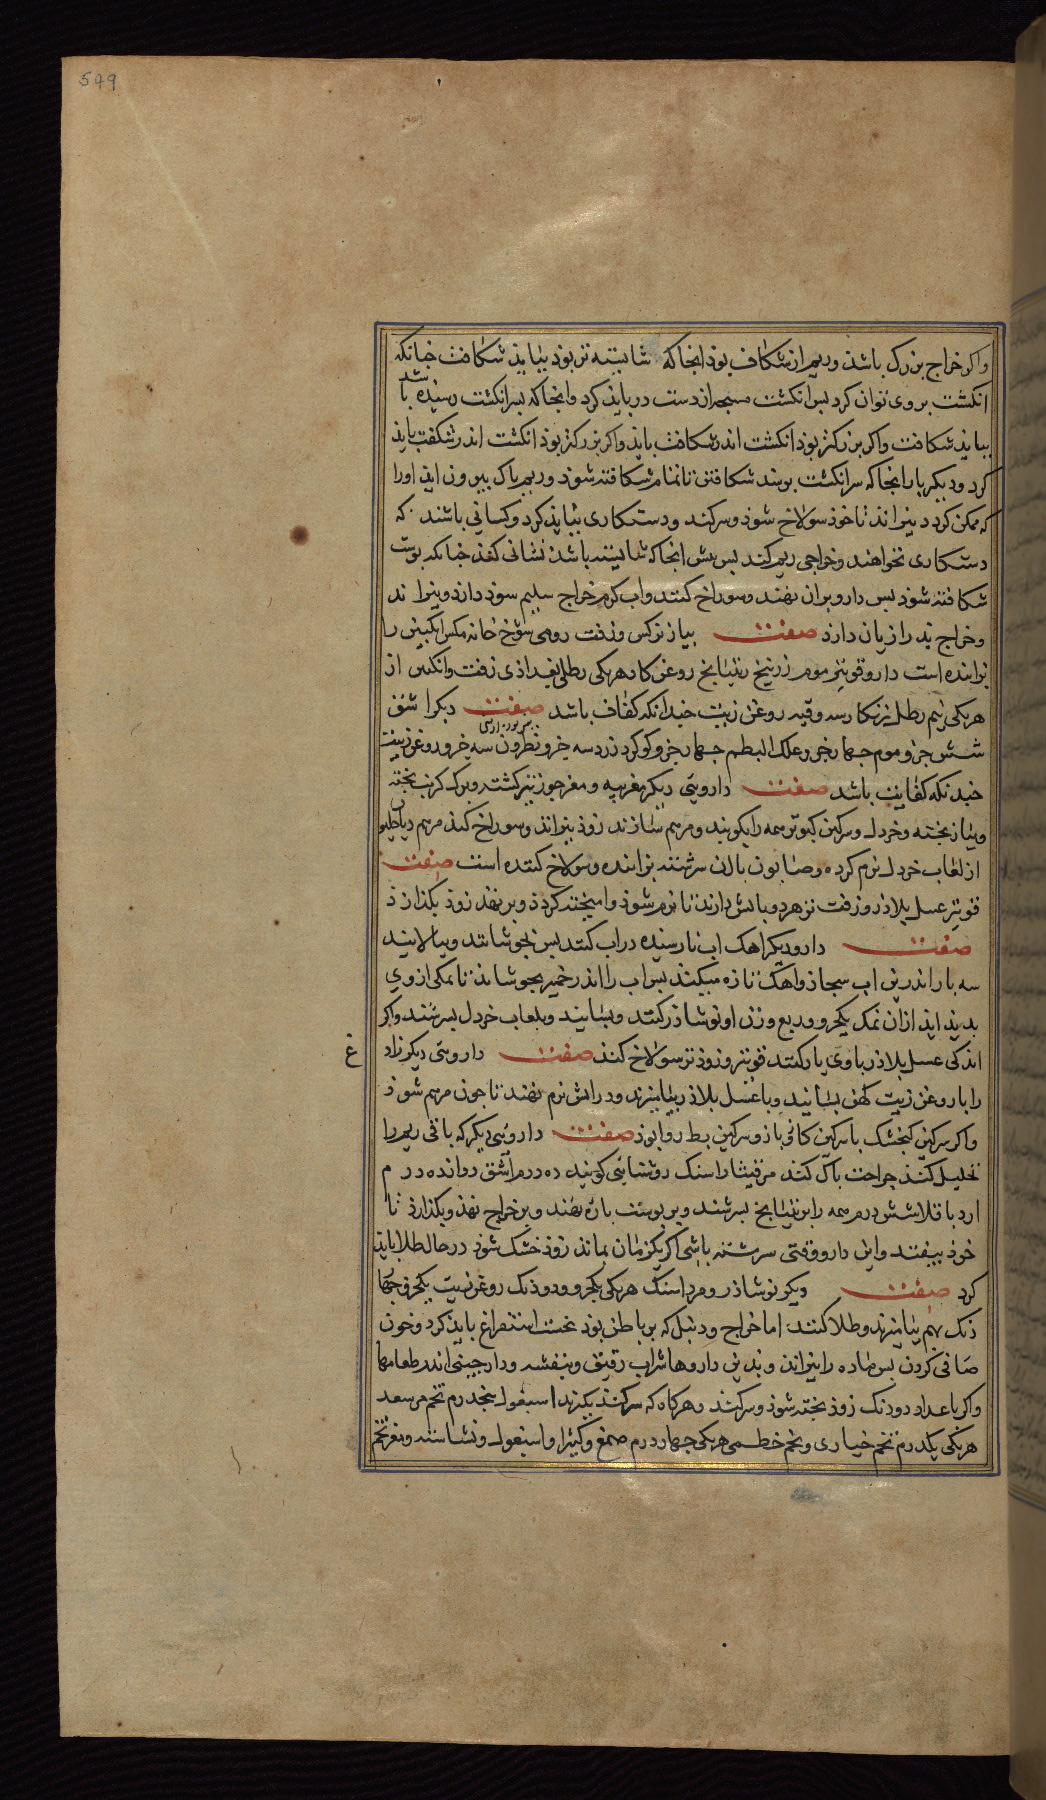 549
واکر خراج بزرک باشد وریم از شکاف بوذ انجا که شایسته تر بوذ بباید شکافت جنانکه
انکشت بروی توان کرد بس انکشت مسبحه از دست در باید کرد وانجا که سر انکشت رسیده باشد
بباید شکافت واکر بزرکتر بوذ انکشت اندر شکافت باید واکر بزرکتر بوذ انکشت اندر شکفت باید
کرد ودیکر بار انجا که سر انکشت بوسد شکافتن تا تمام شکافته شوذ وریم باک بیرون اید اورا
که ممکن کردد بزاند تا خوذ سولاخ شوذ وسر کند ودستکاری نباید کرد وکسانی باشند که
دستکاری نخواهند وخراجی ریم کند بس بیش انجا که شایسته باشد نشانی کنذ جنانکه بوست
شکافته شوذ بس دارو بران نهند وسوراخ کنند واب کرم خراج سلیم سوذ دارذ وبزاند
وخراج بد را زیان دارذ صفت بیاز نرکس وزفت رومی سوخ خانه مکس انکبین را
بزاننده است دارو قویتر موم زرنیخ ریتیانج روغن کاو هریکی رطلی بغدادی زفت وانکبین از
هریکی نیم رطل زنکار سه وقیه روغن زیت جندانکه کفاف باشد صفت دیکر اشق
شش جزو موم جهار جزو علک البطم جهار جزو کوکرد زرد سه جزو نطرون سه جزو روغن زیت
جندنکه کفایت باشد صفت داروی دیکر مغز به ومغز جوز تیز کشته وبرک کرنب بخته
وبیاز بخته وخردل وسرکین کبوتر همه را بکوبند ومرهم سازند زوذ بزاند وسوراخ کند مرهم دیاخیلون
از لعاب خردل نرم کرده وصابون بازان سرشته بزاننده وسولاخ کننده است صفت
قویتر عسل بلاذر وزفت تر هردو باتش دارند تا نرم شوذ وامیخته کردذ وبر نهند زوذ بکذارذ
صفت دارو دیکر اهک اب نارسیده در اب کنند بس بجوشانند وببالایند
سه بار اندرین اب سجاز واهک تازه میکنند بس اب را اندر خمیر بجوشاند تا نمکی از وی
بدید اید ازان نمک یکجزو وربع وزن او نوشاذر کنند وبسایند وبلعاب خردل بسرشند واکر
اندکی عسل بلاذر باوی یار کنند قویتر وزوذتر سولاخ کند صفت داروئی دیکر زاد
غ
را با روغن زیت کهن بسایند وبا عسل بلاذر بیامیزند وبر اتش نرم نهند تا جون مرهم شوذ
واکر سرکین کنجشک با سرکین کافی باز وسرکین بط روا بوذ صفت داروئی دیکر که باقی ریم را
تحلیل کند جراحت باک کند مرقیشا را سنک روشنایی کویند ده درم اشق دوانده درم
ارد باقلا شش درم همه را بریتیانج بسرشند وبر بوست باره نهند وبر خراج نهند وبکذارذ تا
خوذ بیفتد واین دارو وقتی سرشته باشی اکر یکزمان بماند زوذ خشک شوذ در حال طلا باید
کرد صفت دیکر نوشاذر ومرداسنک هریکی یکجزو ودو دنک روغن زیت یکجزو وجهار
دنک بهم بیامیزند وطلا کنند اما خراج ودنبل که بر باطن بوذ نخست استفراغ باید کرد وخون
صافی کردن بس ماده را بزاند وبدین داروها شراب رقیق وبنفشه ودارجینی اندر طعامها
واکر بامداد دو دنک زوذ بخته شوذ وسر کند وهرکاه که سر کند بکیرند اسبغول بنجدرم تخم مر سعد
هریکی یکدرم تخم خیاری وتخم خطمی هریکی جهار درم صمغ وکثیرا واسبغول ونشاسته ومغز تخم